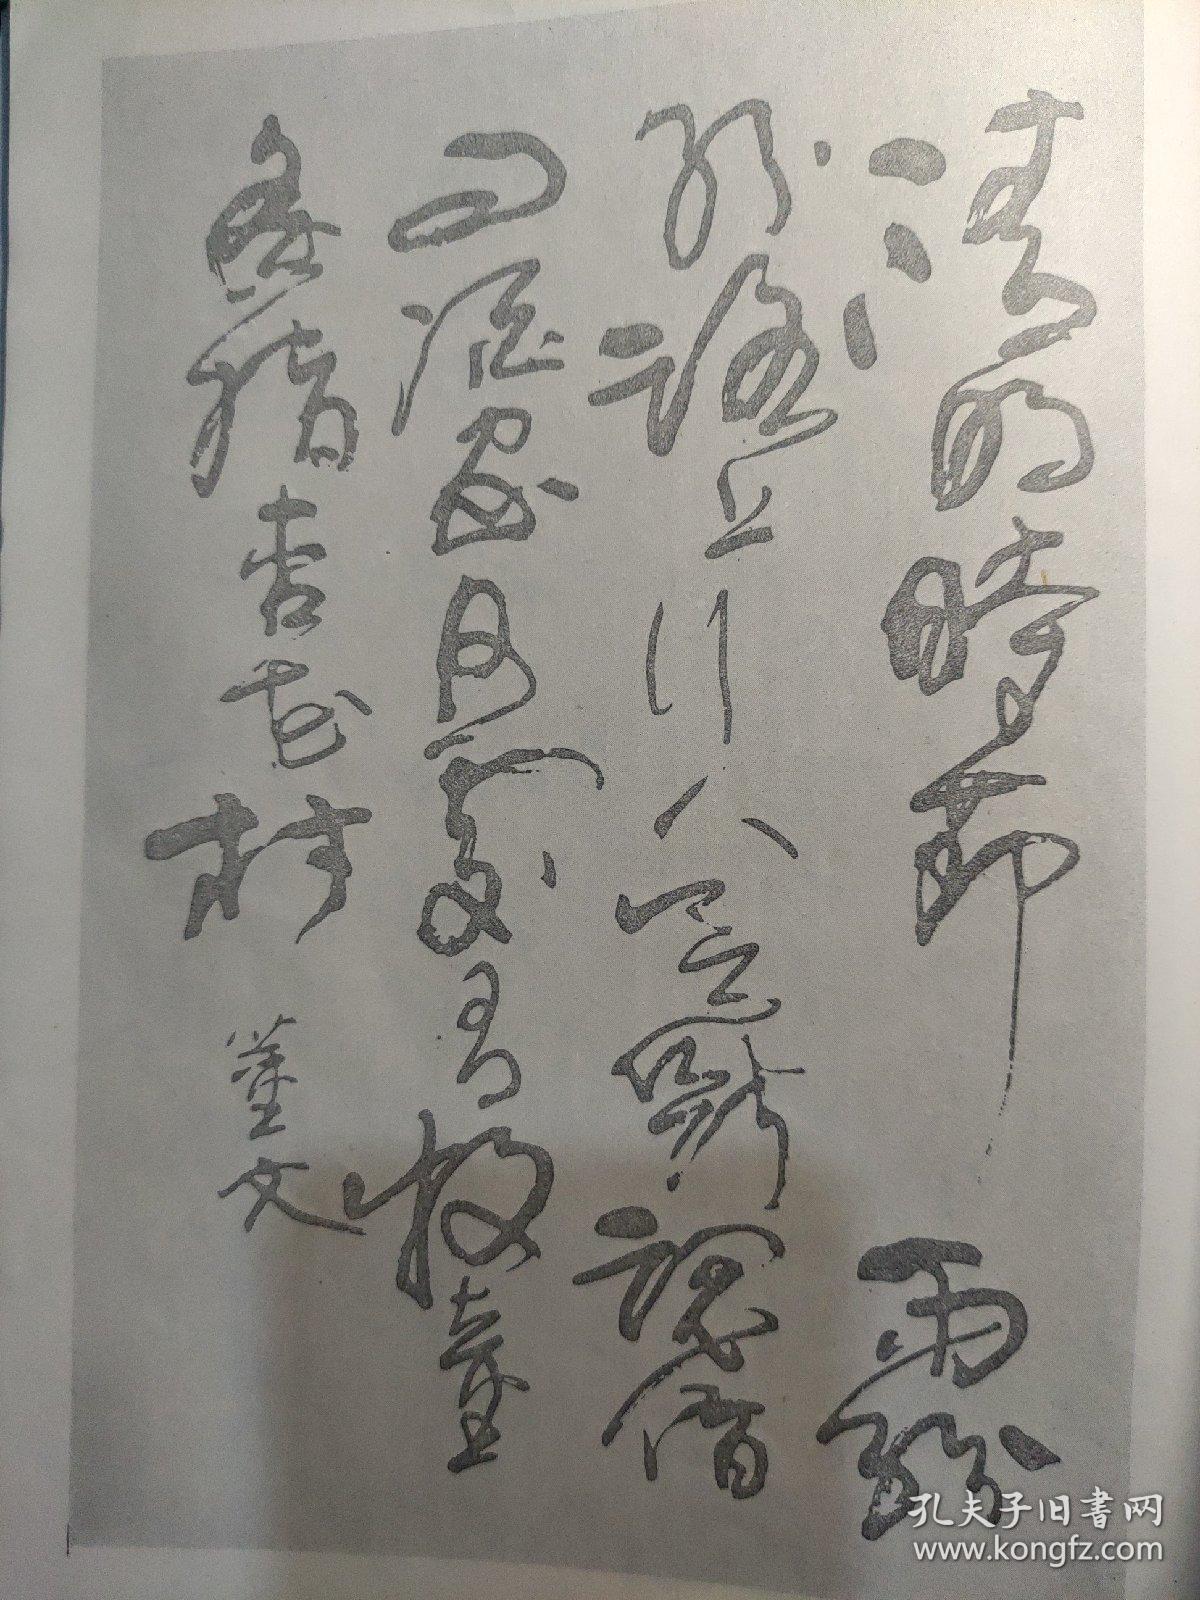 清明時節雨紛
紛路上行人欲斷魂借
問酒家何處有牧童
遙指杏花村 董文
孔夫子旧书网
www.kongfz.com